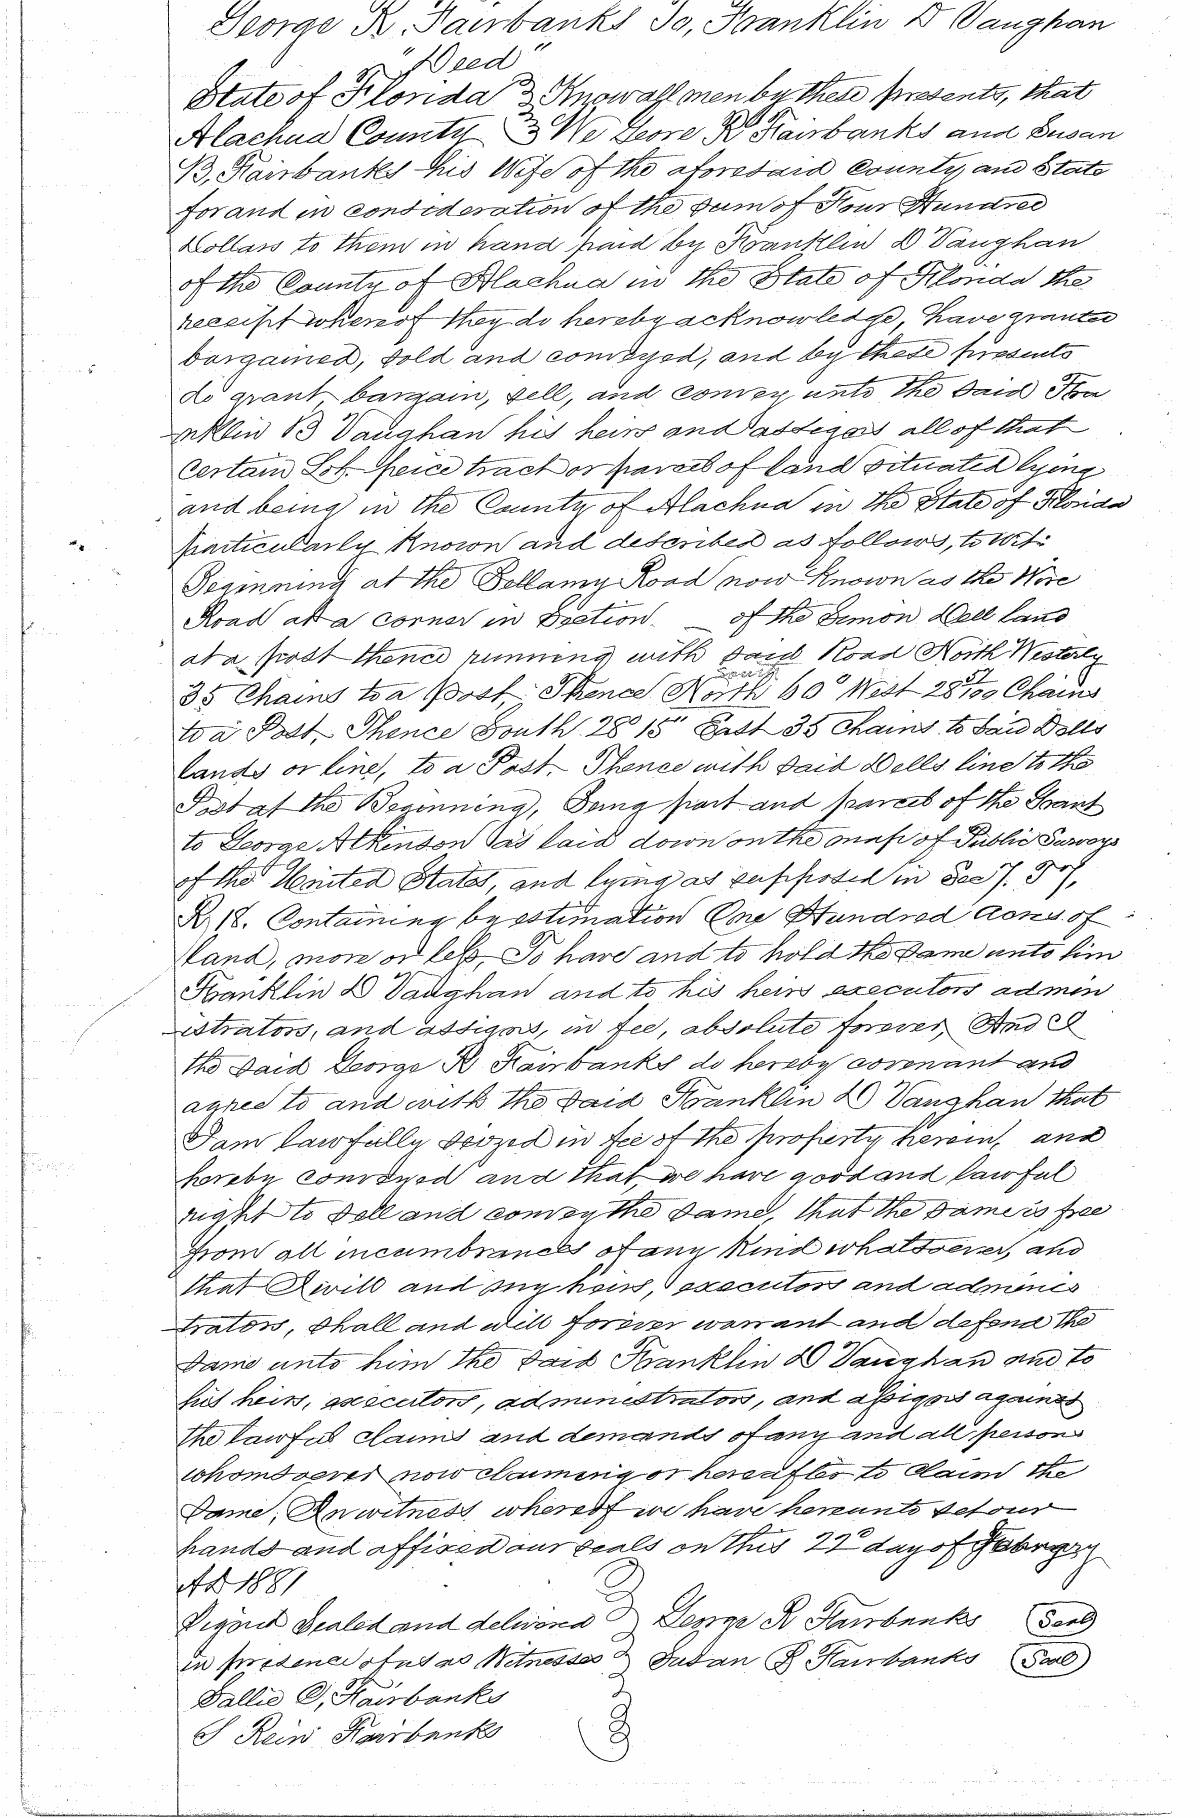 George R. Fairbanks To, Franklin D Vaughan
"Deed"
State of Florida } Know all men by these presents, that
Alachua County } We Geore R Fairbanks and Susan
B, Fairbanks his Wife of the aforesaid County and State
for and in consideration of the sum of Four Hundred
Dollars to them in hand paid by Franklin D Vaughan
of the County of Alachua in the State of Florida the
receipt whereof they do hereby acknowledge, have granted
bargained, sold and conveyed, and by these presents
do grant, bargain, sell, and convey unto the said Fra
nklin B Vaughan his heirs and assigns all of that
certain Lot. peice tract or parcel of land situated lying
and being in the County of Alachua in the State of Florida
particularly Known and described as follows, to wit:
Beginning at the Bellamy Road now Known as the Wire
Road at a corner in Section _ of the Simon Dell land
at a post thence running with said Road North Westerly
35 Chains to a Post, Thence North South 60° West 28 57/100 Chains
to a Post, Thence South 28° 15" East 35 Chains to said Dells
lands or line, to a Post. Thence with said Dells line to the
Post at the Beginning, Being part and parcel of the Grant
to George Atkinson as laid down on the map of Public Surveys
of the United States, and lying as supposed in Sec 7.
R, 18. Containing by estimation One Hundred Acres of
land, more or less, To have and to hold the same unto him
Franklin D Vaughan and to his heirs executors admin
istrators, and assigns, in fee, absolute forever, And I
the said George R Fairbanks do hereby covenant and
agree to and with the said Franklin D Vaughan that
I am lawfully seized in fee of the property herein, and
hereby conveyed and that, we have good and lawful
right to sell and convey the same, that the same is free
from all incumbrances of any Kind whatsoever, and
that I will and my heirs, executors and adminis
trators, shall and will forever warrant and defend the
same unto him the said Franklin D Vaughan and to
his heirs, executors, administrators, and assigns against
the lawful claims and demands of any and all persons
whomsoever now claiming or hereafter to claim the
same, In witness whereof we have hereunto set our
hands and affixed our seals on this 22d day of February
AD 1881
Signed Sealed and delivered } George R Fairbanks (Seal)
in presence of us as Witnesses } Susan B Fairbanks (Seal)
Sallie C, Fairbanks
S Rein Fairbanks